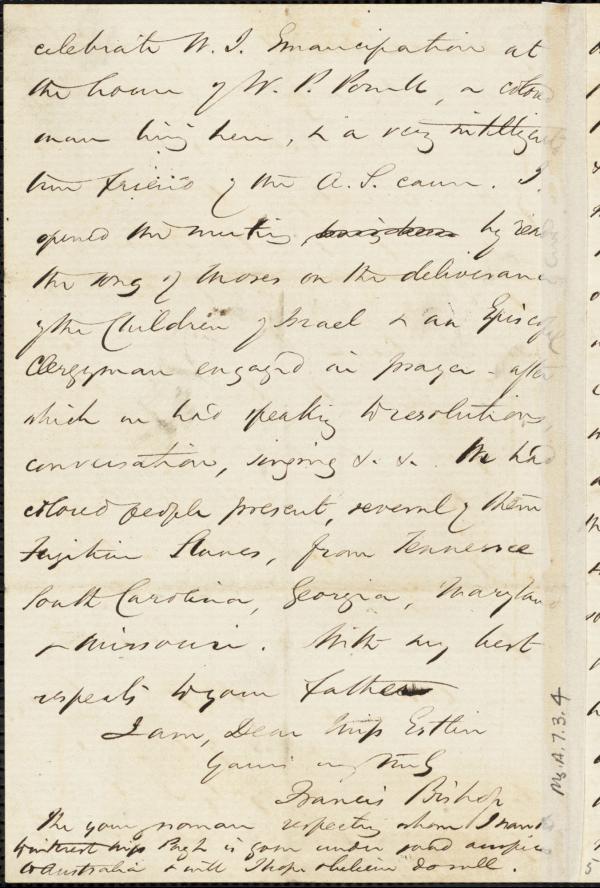 celebrate W. I. Emancipation at
the house of W. P. Powell, a colored
man living here, & a very intelligent
true friend of the A. S. cause. I
opened the meeting, by
the song of Moses on the deliverance
of the Children of Israel & an Episcopal
Clergyman engaged in prayer - after
which we had speaking to resolutions,
conversation, singing &. &. We had
colored people present, several of them
Fugitive Slaves, from Tennessee
South Carolina, Georgia, Maryland
& Missouri. With my best
respects to your father
I am, Dear Miss Estlin
Yours very truly
Francis Bishop
The young woman respecting whom I
to interest Miss Pugh is gone under good auspices
to Australia & will I hope & believe do well.
Ms. A. 7. 3. 4